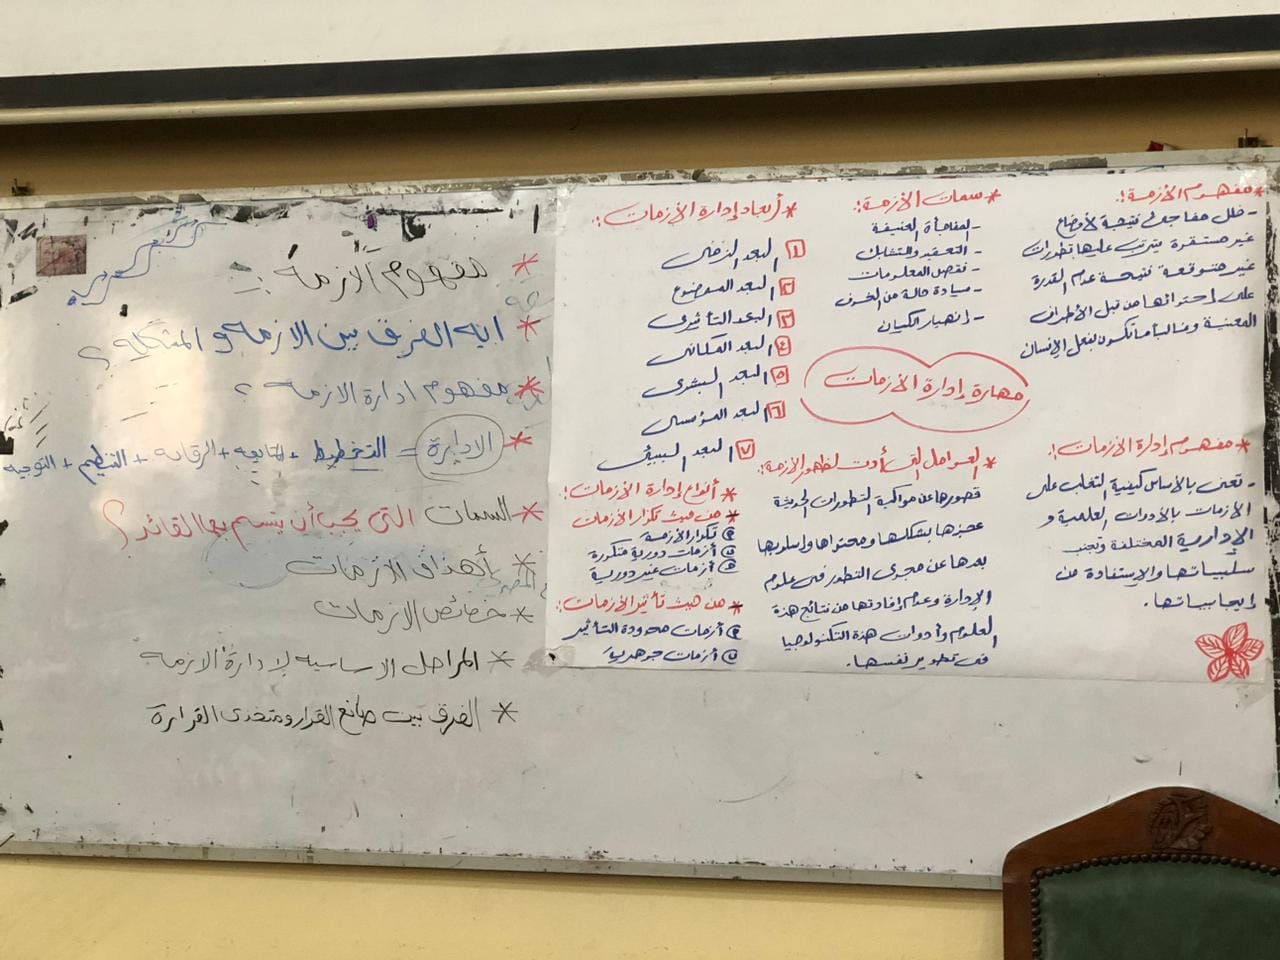 * مفهوم الأزمة:
- خلل مفاجئ نتيجة لأوضاع
غير مستقرة يترتب عليها تطورات
غير متوقعة نتيجة عدم القدرة
على احتوائها من قبل الأطراف
المعنية وغالباً ما تكون بفعل الإنسان
* سمات الأزمة:
- المفاجأة العنيفة
- التعقيد والتشابك
- نقص المعلومات
- سيادة حالة من الخوف
- إنهيار الكيان
* أبعاد إدارة الأزمات:
١ البعد الزمنى
٢ البعد الموضوع
٣ البعد التأثيرى
٤ البعد المكانى
٥ البعد البشرى
٦ البعد المؤسسى
٧ البعد البيئى
مهارة إدارة الأزمات
* مفهوم إدارة الأزمات:
- تعنى بالأساس كيفية التغلب على
الأزمات بالأدوات العلمية و
الإدارية المختلفة وتجنب
سلبياتها والإستفادة من
إيجابياتها.
* العوامل التى أدت لظهور الأزمة:
قصورها عن مواكبة التطورات الحديثة
عجزها بشكلها ومحتواها وأسلوبها
بعدها عن مجرى التطور فى علوم
الإدارة وعدم إفادتها من نتائج هذة
العلوم وأدوات هذة التكنولوجيا
فى تطوير نفسها.
* أنواع إدارة الأزمات:
* من حيث تكرار الأزمات
تكرار الأزمة
أزمات دورية متكررة
أزمات غير دورية
* من حيث تأثير الأزمات:
أزمات محدودة التأثير
أزمات جوهرية
* مفهوم الازمة :
* ايه الفرق بين الازمة و المشكلة ؟
* مفهوم ادارة الازمة ؟
* الادارة = التخطيط + المتابعه + الرقابة + التنظيم + التوجيه
* السمات التى يجب أن يتسم بها القائد ؟
* أهداف الازمات
* خصائص الازمات
* المراحل الاساسية لإدارة الازمة
* الفرق بين صانع القرار ومتخذى القرارة